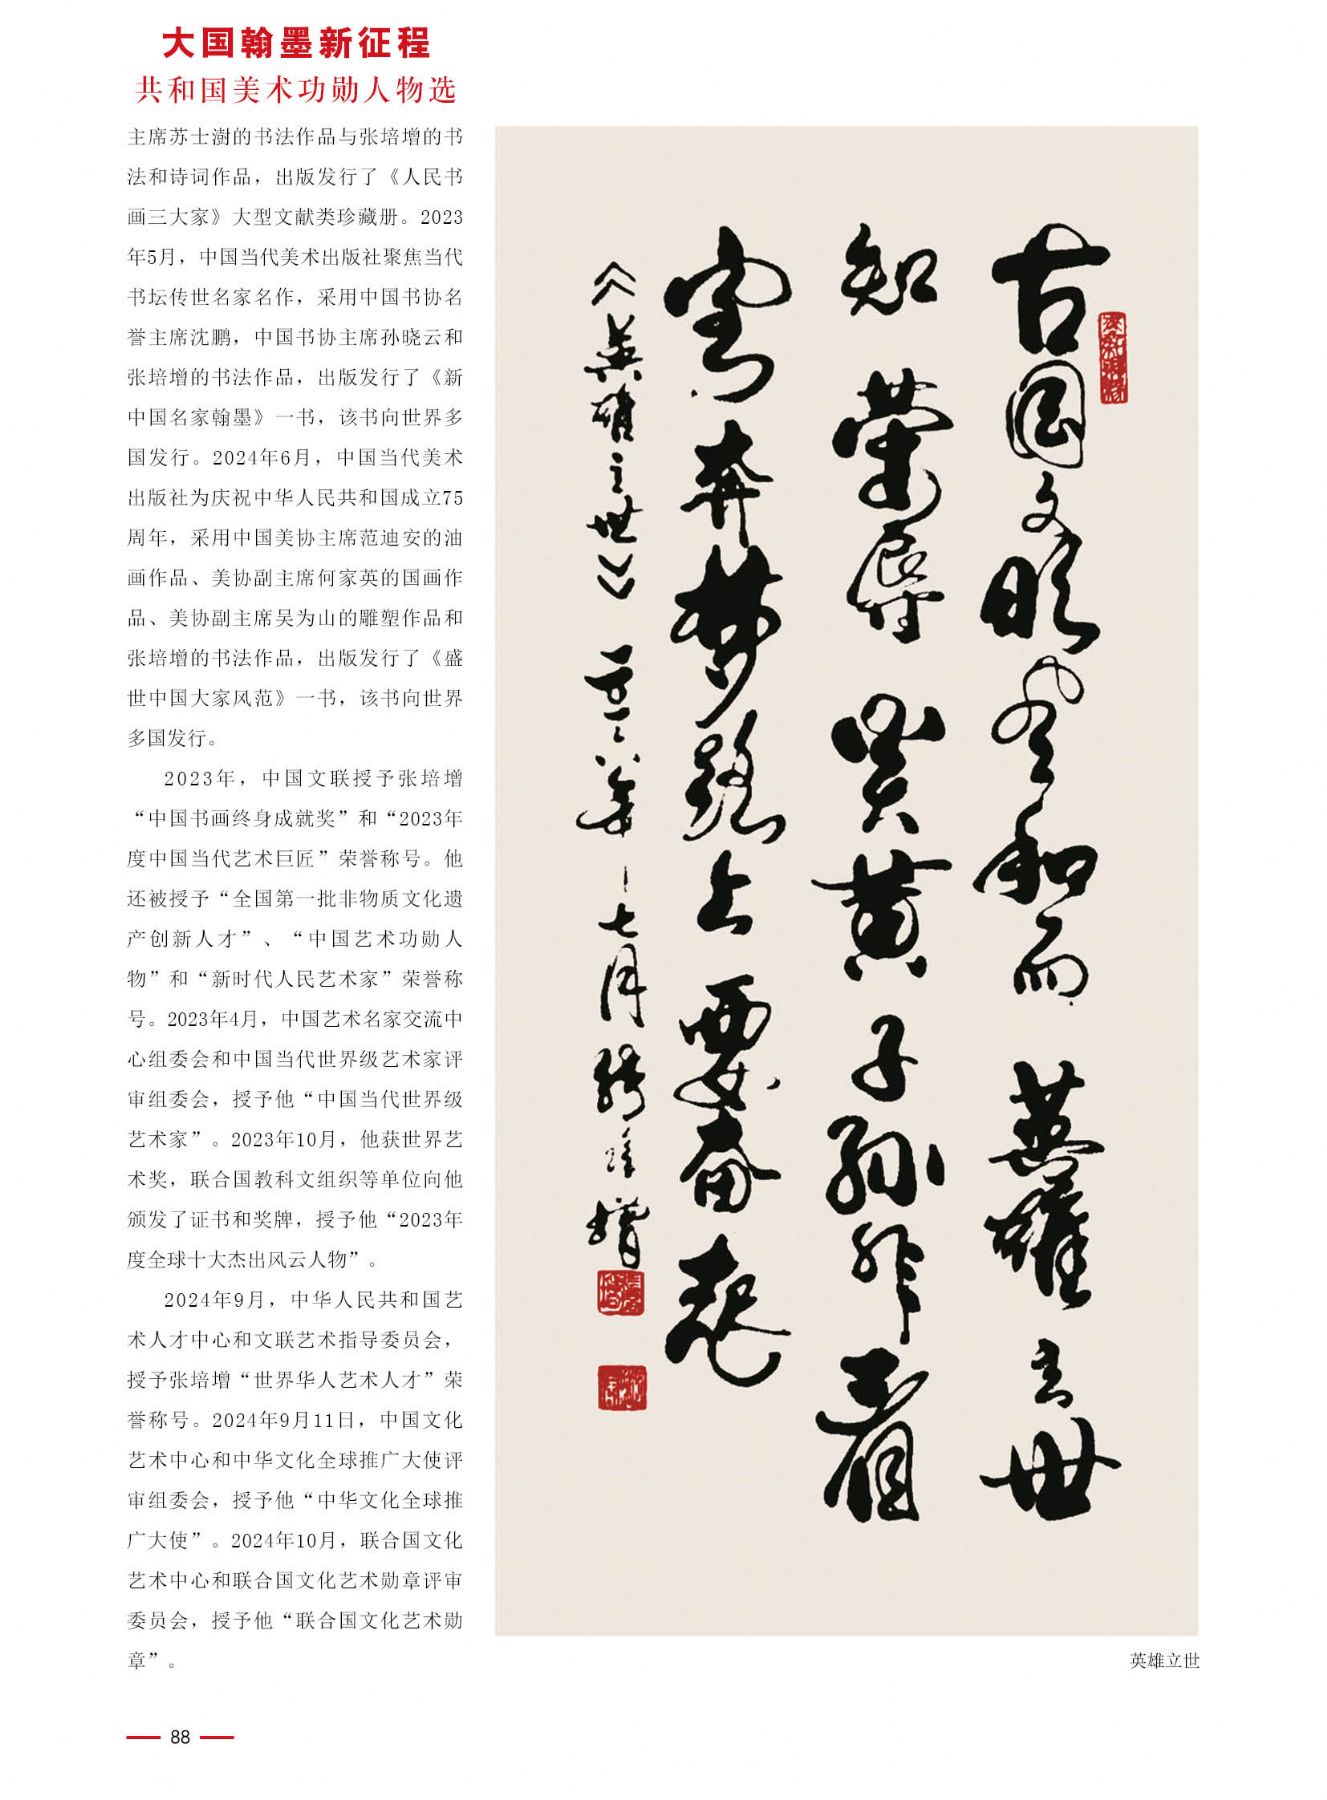 大国翰墨新征程
共和国美术功勋人物选
主席苏士澍的书法作品与张培增的书
法和诗词作品，出版发行了《人民书
画三大家》大型文献类珍藏册。2023
年5月，中国当代美术出版社聚焦当代
书坛传世名家名作，采用中国书协名
誉主席沈鹏，中国书协主席孙晓云和
张培增的书法作品，出版发行了《新
中国名家翰墨》一书，该书向世界多
国发行。2024年6月，中国当代美术
出版社为庆祝中华人民共和国成立75
周年，采用中国美协主席范迪安的油
画作品、美协副主席何家英的国画作
品、美协副主席吴为山的雕塑作品和
张培增的书法作品，出版发行了《盛
世中国大家风范》一书，该书向世界
多国发行。
2023年，中国文联授予张培增
“中国书画终身成就奖”和“2023年
度中国当代艺术巨匠”荣誉称号。他
还被授予“全国第一批非物质文化遗
产创新人才”、“中国艺术功勋人
物”和“新时代人民艺术家”荣誉称
号。2023年4月，中国艺术名家交流中
心组委会和中国当代世界级艺术家评
审组委会，授予他“中国当代世界级
艺术家”。2023年10月，他获世界艺
术奖，联合国教科文组织等单位向他
颁发了证书和奖牌，授予他“2023年
度全球十大杰出风云人物”。
2024年9月，中华人民共和国艺
术人才中心和文联艺术指导委员会，
授予张培增“世界华人艺术人才”荣
誉称号。2024年9月11日，中国文化
艺术中心和中华文化全球推广大使评
审组委会，授予他“中华文化全球推
广大使”。2024年10月，联合国文化
艺术中心和联合国文化艺术勋章评审
委员会，授予他“联合国文化艺术勋
章”。
古国文明孝和而英雄立世
知荣辱炎黄子孙非看
奔梦路上要奋起
《英雄立世》年七月张培增
英雄立世
88